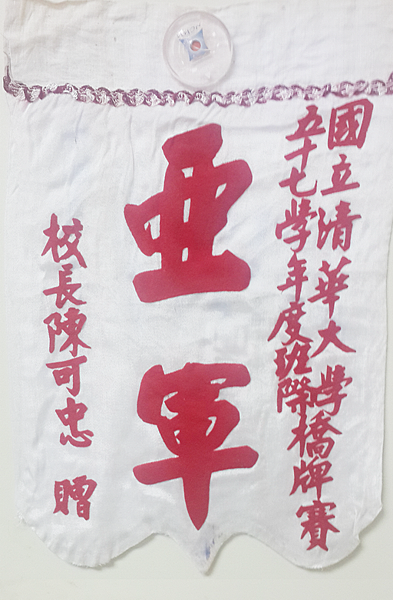 國立清華大學
五十七學年度班際橋牌賽
亞軍
校長陳可忠 贈